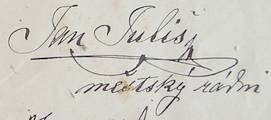 Jan Juliš
městský rádní